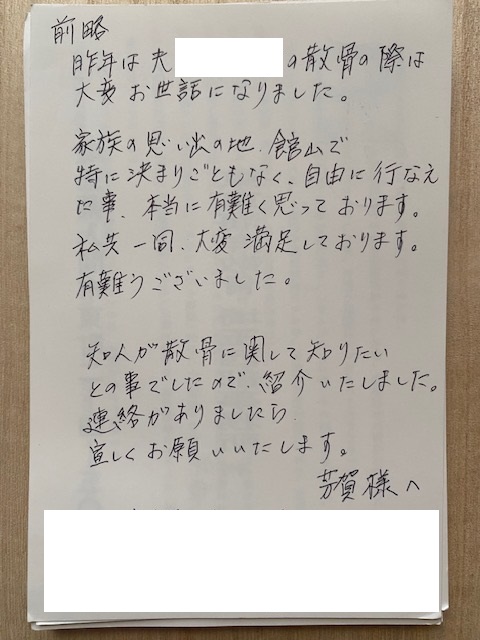 前略
昨年は夫の散骨の際は
大変お世話になりました。
家族の思い出の地、館山で
特に決まりごともなく、自由に行なえ
た事、本当に有難く思っております。
私共一同、大変満足しております。
有難うございました。
知人が散骨に関して知りたい
との事でしたので、紹介いたしました。
連絡がありましたら
宜しくお願いいたします。
芳賀様へ